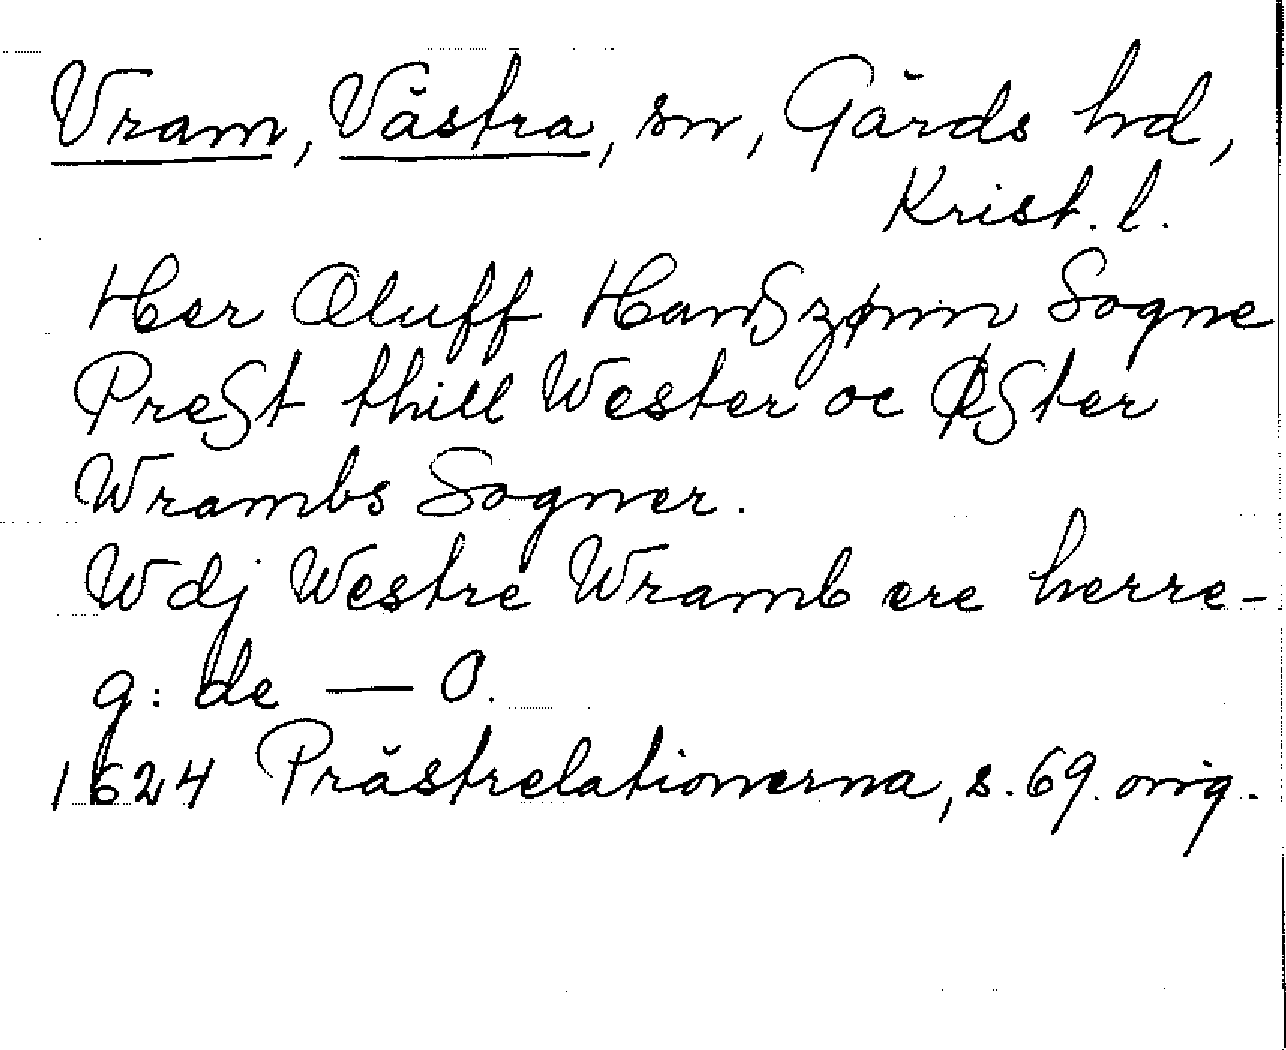 Vram, Västra, sn, Gärds hd,
Krist. l.
Her Oluff Hanßzønn Sogne
Preßt thill Wester oc Øßter
Wrambs Sogner.
Wdj Westre Wramb ere herre-
g: de — O.
1624 Prästrelationerna, s. 69. orig.